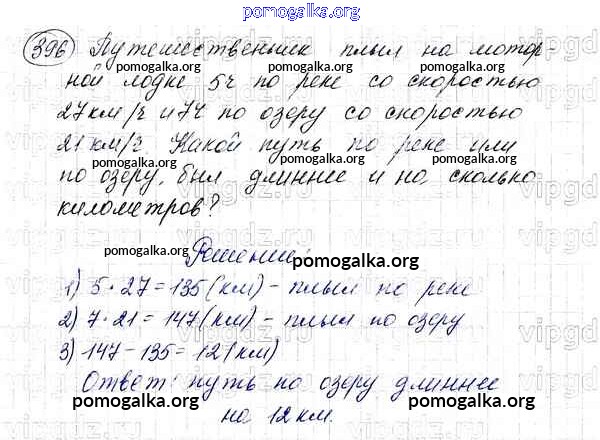 pomogalka.org
396) Путешественник плыл на мотор-
pomogalka.org pomogalka.org
ной лодке 5ч по реке со скоростью
27 км/ч и 7ч по озеру со скоростью
pomogalka.org pomogalka.org
21 км/ч. Какой путь по реке или
pomogalka.org pomogalka.org
по озеру, был длиннее и на сколько
километров?
pomogalka.org
Решение:
pomogalka.org
1) 5·27=135(км)- плыл по реке
pomogalka.org
2) 7·21=147(км)-плыл по озеру
pomogalka.org
3) 147-135=12(км)
Ответ: путь по озеру длиннее
pomogalka.org
на 12км.
pomogalka.org